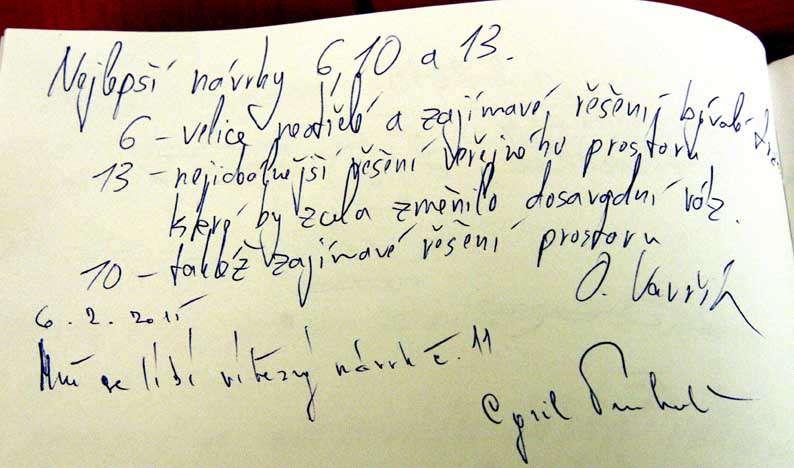 Nejlepší návrhy 6, 10 a 13.
6 - velice neotřelé a zajímavé řešení bývalé
13 - nejideálnější řešení veřejného prostoru
které by zcela změnilo dosavadní ráz.
10 - taktéž zajímavé řešení prostoru
O. Vavřík
6. 2. 2015
Mně se líbí vítězný návrh č. 11
Cyril